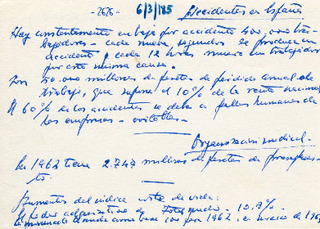 - 2676 - 6/3/1965 Accidentes en España
Hay constantemente en baja por accidente 400,000 tra-
bajadores - cada nueve segundos se produce un
accidente y cada 12 horas muere un trabajador
por esta misma causa.
Son 50.000 millones de pesetas de pérdida anual de
trabajo, que supone el 10% de la renta nacional
El 60% de los accidentes se debe a fallos humanos de
las empresas -
Organización sindical.
En 1962 tuvo 2.747 millones de pesetas de presupues-
to.
Aumentos del índice coste de vida:
10.9%
100 por 1962, a marzo de